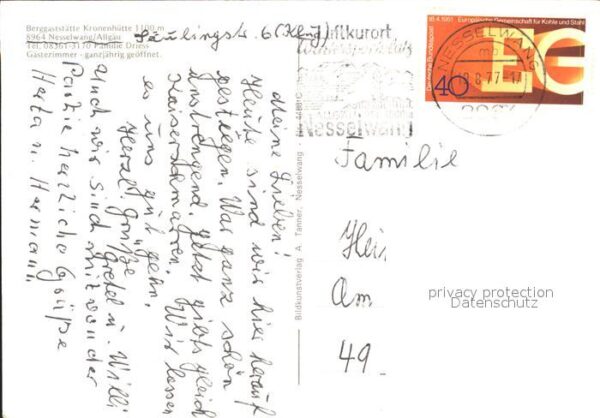 Berggaststätte Kronenhütte 1100 m
8964 Nesselwang/Allgäu
Tel. 08361-3170 Familie Driess
Gästezimmer - ganzjährig geöffnet.
6 (Kbg)
Meine Lieben!
Heute sind wir hier herauf
gestiegen. War ganz schön
anstrengend. Jetzt gibts gleich
Kaiserschmarren. Wir lassen
es uns gut gehn.
Herzl. Grüße
Gretel u. Willi
Auch wir sind mit von der
Partie herzliche Grüße
Herta u. Hermann
Bildkunstverlag A. Tanner, Nesselwang
Luftkurort
Nesselwang
16.4.1951 Europäische Gemeinschaft für Kohle und Stahl
Deutsche Bundespost
40
NESSELWANG
mb
8.8.77-17
8964
Familie
Am
49
privacy protection
Datenschutz